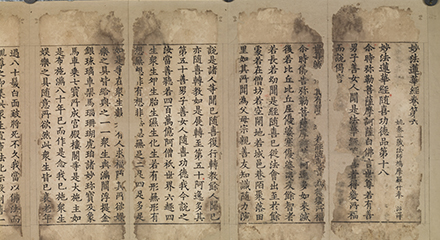 妙法蓮華經卷第六
姚秦三藏法師鳩摩羅什奉 詔譯
妙法蓮華經隨喜功德品第十八
爾時彌勒菩薩摩訶薩白佛言世尊若有善
男子善女人聞是法華經隨喜者得幾所福
而說偈言
其有聞
爾時佛告彌勒菩薩摩訶薩阿逸多如來滅
後若比丘比丘尼優婆塞優婆夷及餘智者
若長若幼聞是經隨喜已從法會出至於餘
處若在僧坊若空閑地若城邑巷陌聚落田
里如其所聞為父母宗親善友知識隨力演
說是諸人等聞已隨喜復行轉教餘人聞已
亦隨喜轉教如是展轉至第五十阿逸多其
第五十善男子善女人隨喜功德我今說之
汝當善聽若四百萬億阿僧祇世界六趣四
生眾生卵生胎生濕生化生若有形無形有
想非 想無足二足四足多
等在眾生數 有人求福隨其所欲娛
樂之具皆給與之一一眾生與滿閻浮提金
銀琉璃車磲馬瑙珊瑚琥珀諸妙珍寶及象
馬車乘七寶所成宮殿樓閣等是大施主如
是布施滿八十年已而作是念我已施眾生
娛樂之具隨意所欲然此眾生皆已衰老年
過八十髮白面皺將死不久我當以佛法而
訓導之即集此眾生宣布法化示教